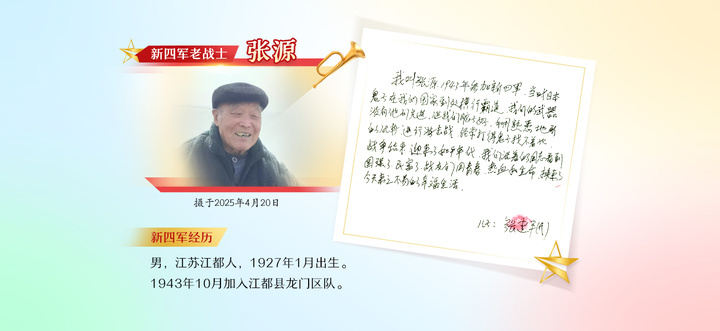 新四军老战士 张源
摄于2025年4月20日
新四军经历
男，江苏江都人，1927年1月出生。
1943年10月加入江都县龙门区队。
我叫张源，1943年参加新四军，当时日本
鬼子在我们国家到处横行霸道，我们的武器
没有他们先进，但我们
的优势进行游击战，经常打得鬼子找不着北，
战争结束迎来了和平年代，我们活着的同志看到
国强了民富了，战友们用青春、热血和生命，换来了
今天来之不易的幸福生活。
儿子：张建军(代)